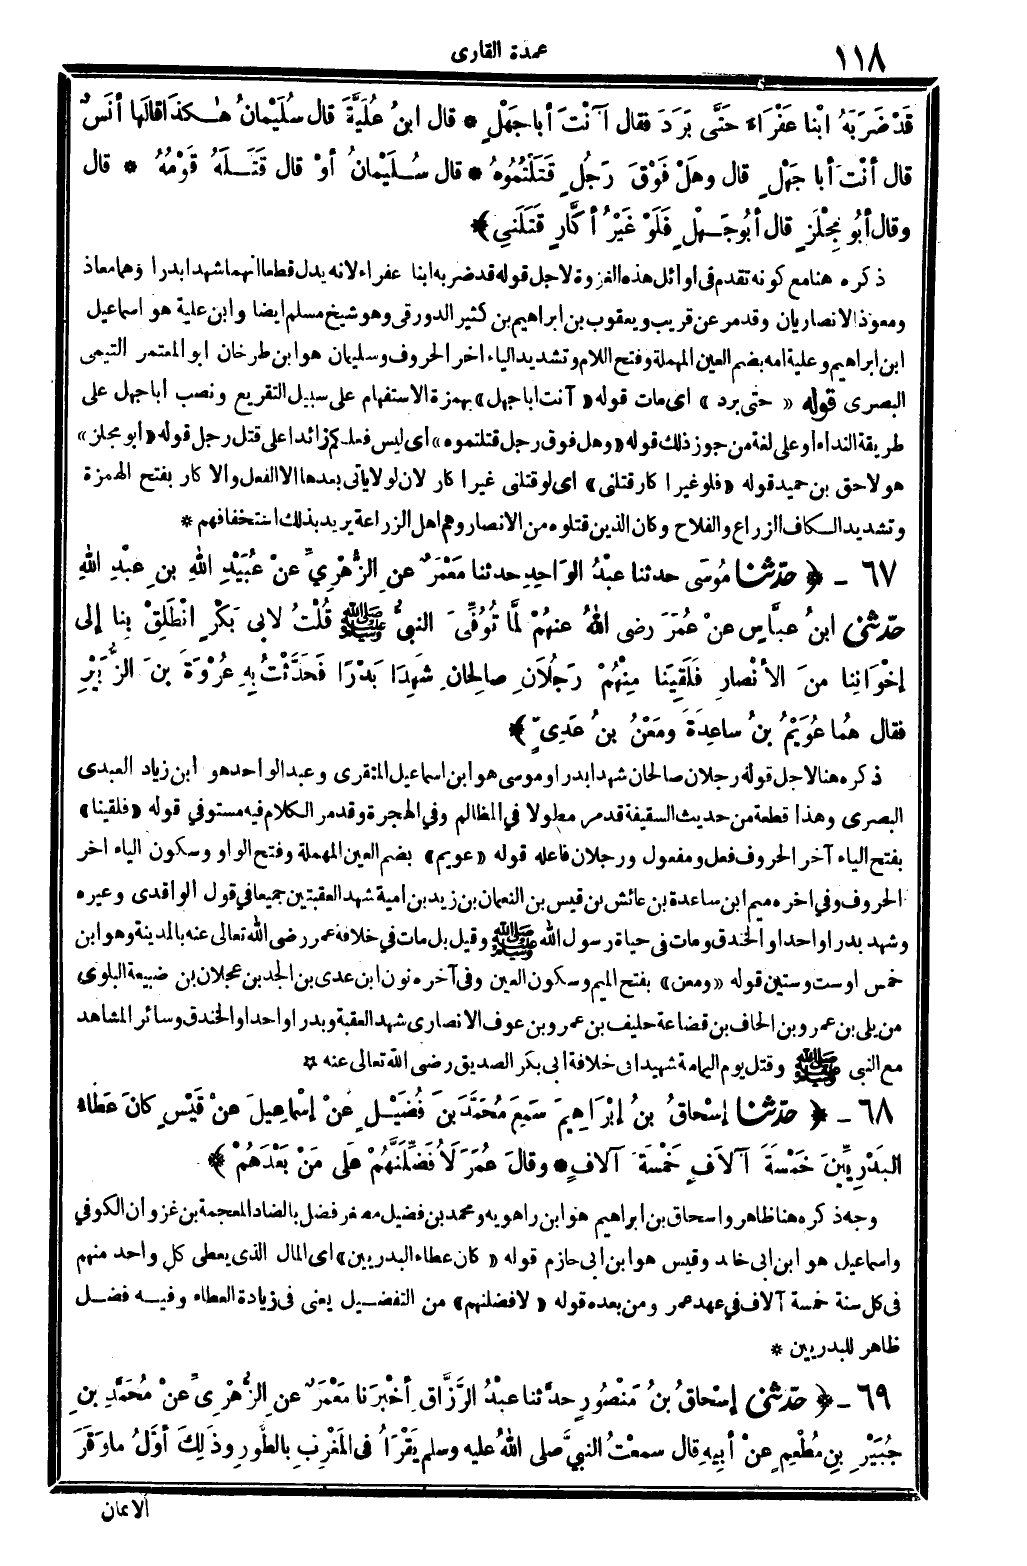 ١١٨
عمدة القارى
قَدْ ضَرَبَهُ ابْنا عَفْرَاءَ حَتَّى بَرَدَ فقال آنْتَ أبا جَهْلٍ * قال ابنُ عُلَيَّةَ قال سُلَيْمانُ هٰكذا قالَها أنَسٌ
قال أنْتَ أبا جَهْلٍ قال وهَلْ فَوْقَ رَجُلٍ قَتَلْتُمُوهُ * قال سُلَيْمانُ أوْ قال قَتَلَهُ قَوْمُهُ * قال
وقال أبُو مِجْلَزٍ قال أبُو جَهْلٍ فَلَوْ غَيْرُ أكَّارٍ قَتَلَنِي ﴾
ذكره هنا مع كونه تقدم فى اوائل هذه الغزوة لاجل قوله قد ضربه ابنا عفراء لانه يدل قطعا انهما شهدا بدرا وهما معاذ
ومعوذ الانصاريان وقد مر عن قريب ويعقوب بن ابراهيم بن كثير الدورقى وهو شيخ مسلم ايضا وابن علية هو اسماعيل
ابن ابراهيم وعلية امه بضم العين المهملة وفتح اللام وتشديد الياء اخر الحروف وسليمان هو ابن طرخان ابو المعتمر التيمى
البصرى قوله « حتى برد » اى مات قوله « آنت اباجهل » بهمزة الاستفهام على سبيل التقريع ونصب أباجهل على
طريقة النداء أو على لغة من جوز ذلك قوله « وهل فوق رجل قتلتموه » اى ليس فعلكم زائدا على قتل رجل قوله « ابو مجلز »
هو لاحق بن حميد قوله « فلو غير اكار قتلنى » اى لو قتلنى غير اكار لان لو لا ياتى بعدها الا الفعل والاكار بفتح الهمزة
وتشديد الكاف الزراع والفلاح وكان الذين قتلوه من الانصار وهم اهل الزراعة يريد بذلك استخفافهم *
٦٧ - ﴿ حدّثنا مُوسَى حدثنا عبدُ الوَاحِدِ حدثنا مَعْمَرٌ عنِ الزُّهْرِيِّ عنْ عُبَيْدِ اللهِ بنِ عبْدِ اللهِ
حدّثنى ابنُ عبَّاسٍ عنْ عُمَرَ رضى اللهُ عنهُمْ لمَّا تُوُفِّىَ النبيُّ ﷺ قُلْتُ لابى بَكْرٍ انْطَلِقْ بِنا إلى
إخْوَانِنا منَ الأنْصارِ فَلَقِيَنا مِنْهُمْ رَجُلَانِ صالِحانِ شَهِدَا بَدْرًا فَحَدَّثْتُ بِهِ عُرْوَةَ بنَ الزُّبَيْرِ
فقال هُما عُوَيْمُ بنُ ساعِدَةَ ومَعْنُ بنُ عَدِىٍّ ﴾
ذكره هنا لاجل قوله رجلان صالحان شهدا بدرا وموسى هو ابن اسماعيل المنقرى وعبد الواحد هو ابن زياد العبدى
البصرى وهذا قطعة من حديث السقيفة قد مر مطولا في المظالم وفي الهجرة وقد مر الكلام فيه مستوفي قوله « فلقينا »
بفتح الياء آخر الحروف فعل ومفعول ورجلان فاعله قوله « عويم » بضم العين المهملة وفتح الواو وسكون الياء اخر
الحروف وفي اخره ميم ابن ساعدة بن عائش بن قيس بن النعمان بن زيد بن امية شهد العقبتين جميعا في قول الواقدى وغيره
وشهد بدرا واحدا والخندق ومات فى حياة رسول الله ﷺ وقيل بل مات في خلافة عمر رضى الله تعالى عنه بالمدينة وهو ابن
خمس اوست وستين قوله « ومعن » بفتح الميم وسكون العين وفى آخره نون ابن عدى بن الجد بن عجلان بن ضبيعة البلوى
من بلى بن عمرو بن الحاف بن قضاعة حليف بن عمرو بن عوف الانصارى شهد العقبة وبدرا واحدا والخندق وسائر المشاهد
مع النبى ﷺ وقتل يوم اليمامة شهيدا فى خلافة ابى بكر الصديق رضى الله تعالى عنه *
٦٨ - ﴿ حدّثنا إسْحاقُ بنُ إبْرَاهِيمَ سَمِعَ مُحَمَّدَ بنَ فُضَيْلٍ عنْ إسْماعِيلَ عنْ قَيْسٍ كانَ عَطاءُ
البَدْرِيِّينَ خَمْسَةَ آلَافٍ خَمْسَةَ آلافٍ * وقالَ عُمَرُ لَأُفَضِّلَنَّهُمْ على مَنْ بَعْدَهُمْ ﴾
وجه ذكره هنا ظاهر واسحاق بن ابراهيم هو ابن راهويه ومحمد بن فضيل مصغر فضل بالضاد المعجمة بن غزوان الكوفي
واسماعيل هو ابن ابى خالد وقيس هو ابن ابى حازم قوله « كان عطاء البدريين » اى المال الذى يعطى كل واحد منهم
فى كل سنة خمسة آلاف في عهد عمر ومن بعده قوله « لافضلنهم » من التفضيل يعنى فى زيادة العطاء وفيه فضل
ظاهر للبدريين *
٦٩ - ﴿ حدّثنى إسْحاقُ بنُ مَنْصُورٍ حدَّثنا عبْدُ الرَّزَّاقِ أخْبرَنا مَعْمَرٌ عنِ الزُّهْرِىِّ عنْ مُحَمَّدِ بنِ
جُبَيْرِ بنِ مُطْعِمٍ عنْ أبِيهِ قال سمعْتُ النبيَّ صلى اللهُ عليه وسلم يَقْرَأُ فى المَغْرِبِ بالطُّورِ وذَلِكَ أوَّلُ ما وَقَرَ
الايمان